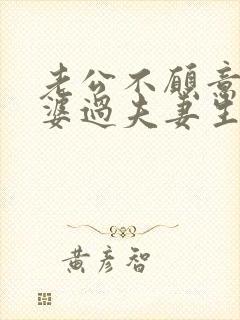 老公不願意
婆過夫妻生
黃彥智